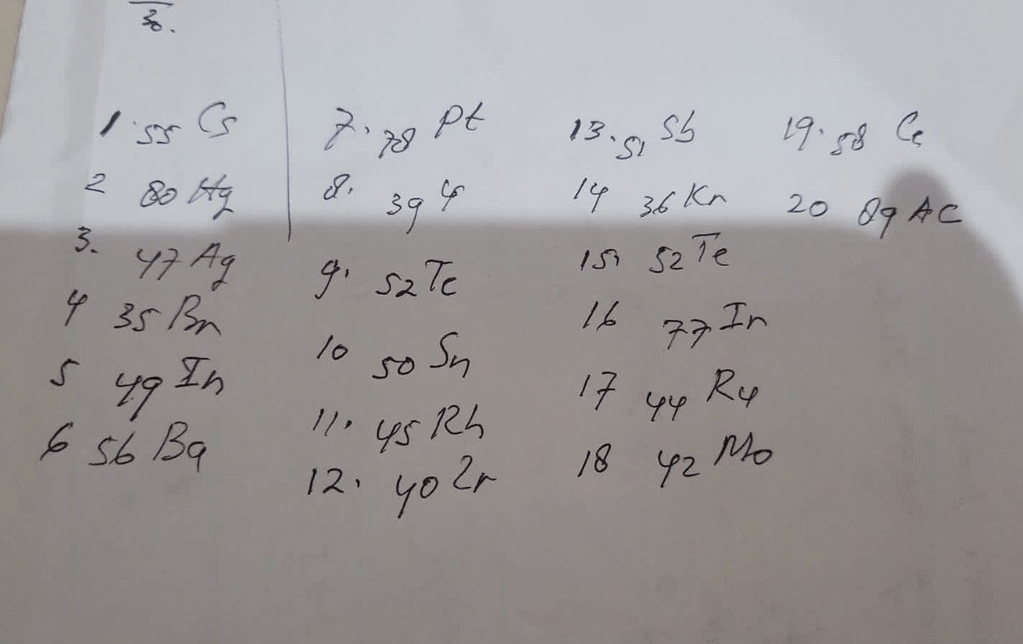 30.
1. 55 Cs
2 80 Hg
3. 47 Ag
4 35 Br
5 49 In
6 56 Ba
7. 78 Pt
8. 39 Y
9. 52 Te
10 50 Sn
11. 45 Rh
12. 40 Zr
13. 51 Sb
14 36 Kr
15. 52 Te
16 77 Ir
17 44 Ru
18 42 Mo
19. 58 Ce
20 89 AC